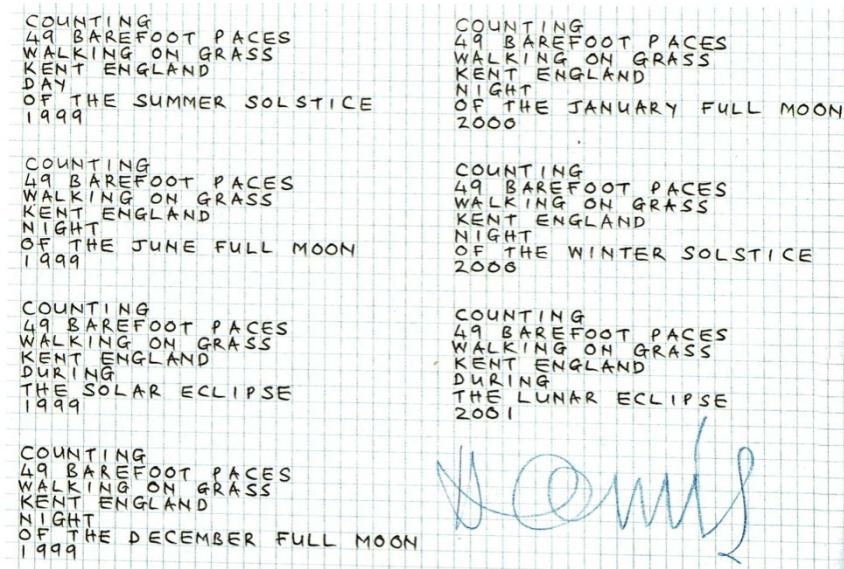 COUNTING
49 BAREFOOT PACES
WALKING ON GRASS
KENT ENGLAND
DAY
OF THE SUMMER SOLSTICE
1999
COUNTING
49 BAREFOOT PACES
WALKING ON GRASS
KENT ENGLAND
NIGHT
OF THE JUNE FULL MOON
1999
COUNTING
49 BAREFOOT PACES
WALKING ON GRASS
KENT ENGLAND
DURING
THE SOLAR ECLIPSE
1999
COUNTING
49 BAREFOOT PACES
WALKING ON GRASS
KENT ENGLAND
NIGHT
OF THE DECEMBER FULL MOON
1999
COUNTING
49 BAREFOOT PACES
WALKING ON GRASS
KENT ENGLAND
NIGHT
OF THE JANUARY FULL MOON
2000
COUNTING
49 BAREFOOT PACES
WALKING ON GRASS
KENT ENGLAND
NIGHT
OF THE WINTER SOLSTICE
2000
COUNTING
49 BAREFOOT PACES
WALKING ON GRASS
KENT ENGLAND
DURING
THE LUNAR ECLIPSE
2001